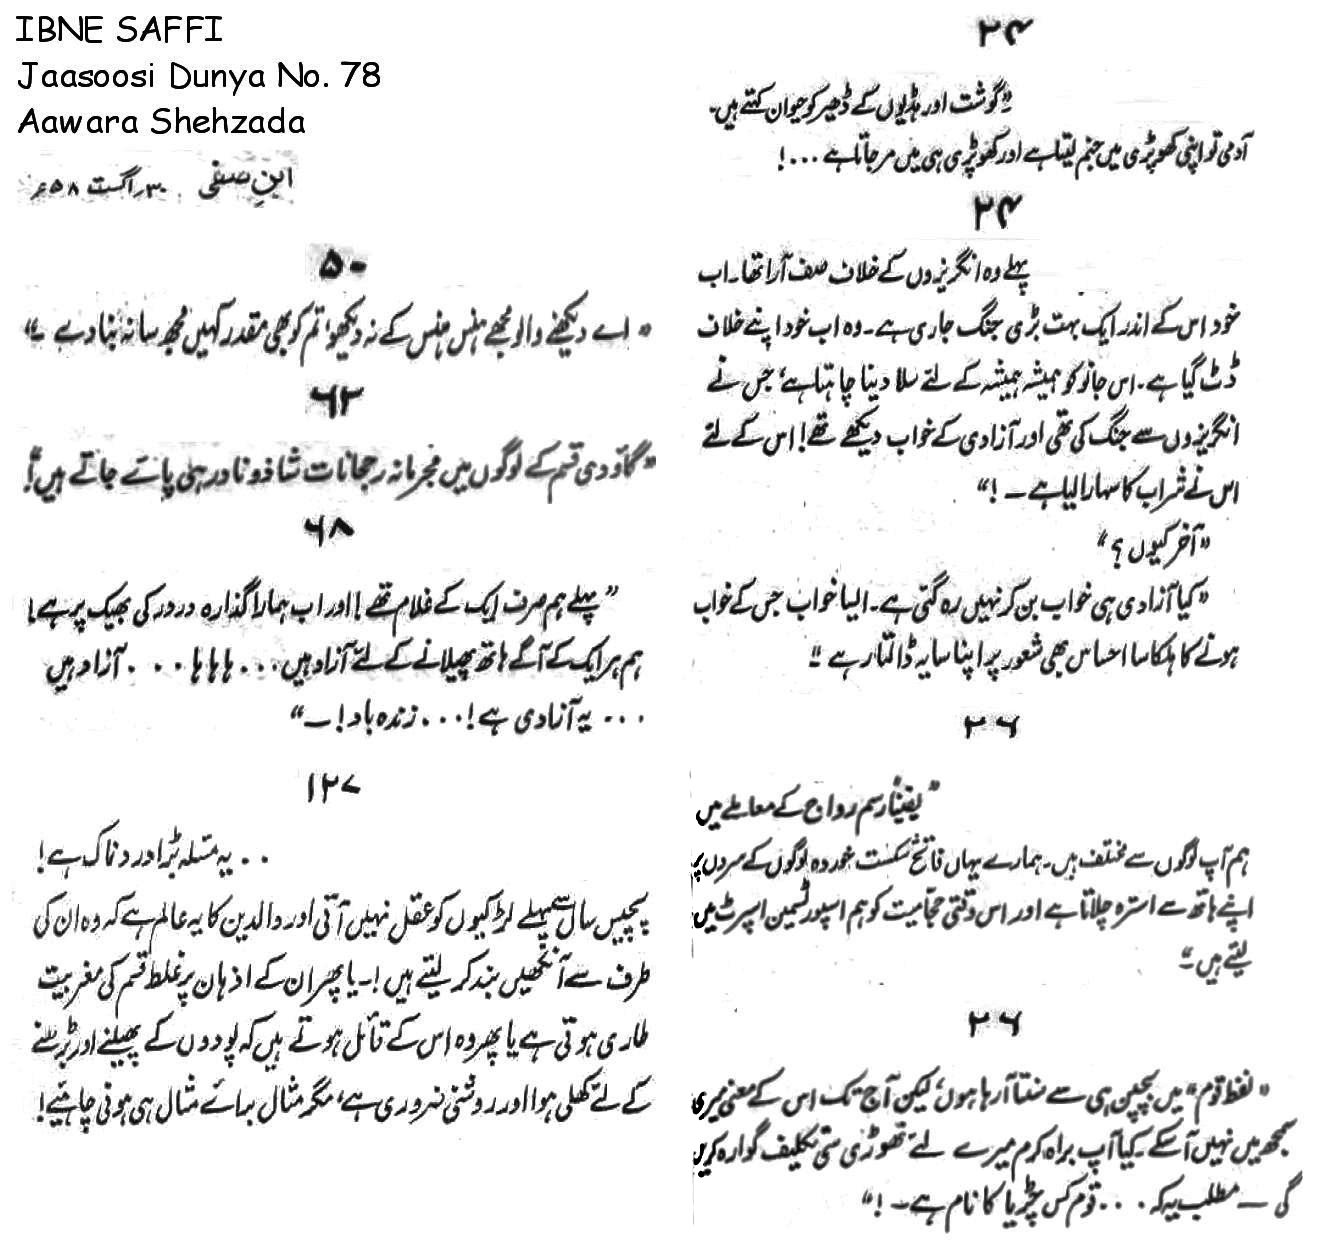 IBNE SAFFI
Jaasoosi Dunya No. 78
Aawara Shehzada
ابنِ صفی ۳۰؍اگست ۵۸ء
۵۰
"اے دیکھنے والو مجھے ہنس ہنس کے نہ دیکھو، تم کو بھی مقدر کہیں مجھ سا نہ بنا دے۔"
۶۲
"گاؤدی قسم کے لوگوں میں مجرمانہ رجحانات شاذونادر ہی پائے جاتے ہیں!"
۶۸
"پہلے ہم صرف ایک کے غلام تھے! اور اب ہمارا گذارہ در در کی بھیک پر ہے!
ہم ہر ایک کے آگے ہاتھ پھیلانے کے لئے آزاد ہیں... ہا ہا ہا... آزاد ہیں
... یہ آزادی ہے!... زندہ باد!۔"
۱۲۷
.. یہ مسئلہ بڑا دردناک ہے!
پچیس سال سے پہلے لڑکیوں کو عقل نہیں آتی اور والدین کا یہ عالم ہے کہ وہ ان کی
طرف سے آنکھیں بند کر لیتے ہیں!۔ یا پھر ان کے اذہان پر غلط قسم کی مغربیت
طاری ہوتی ہے یا پھر وہ اس کے قائل ہوتے ہیں کہ پودوں کے پھیلنے اور بڑھنے
کے لئے کھلی ہوا اور روشنی ضروری ہے، مگر مثال برائے مثال ہی ہونی چاہئیے!
۲۴
"گوشت اور ہڈیوں کے ڈھیر کو حیوان کہتے ہیں۔
آدمی تو اپنی کھوپڑی میں جنم لیتا ہے اور کھوپڑی ہی میں مر جاتا ہے...!
۲۴
پہلے وہ انگریزوں کے خلاف صف آرا تھا۔ اب
خود اس کے اندر ایک بہت بڑی جنگ جاری ہے۔ وہ اب خود اپنے خلاف
ڈٹ گیا ہے۔ اس جانو کو ہمیشہ ہمیشہ کے لئے سلا دینا چاہتا ہے، جس نے
انگریزوں سے جنگ کی تھی اور آزادی کے خواب دیکھے تھے! اس کے لئے
اس نے شراب کا سہارا لیا ہے۔!"
"آخر کیوں؟"
"کیا آزادی ہی خواب بن کر نہیں رہ گئی ہے۔ ایسا خواب جس کے خواب
ہونے کا ہلکا سا احساس بھی شعور پر اپنا سایہ ڈالتا رہے۔"
۲۶
"یقیناً رسم رواج کے معاملے میں
ہم آپ لوگوں سے مختلف ہیں۔ ہمارے یہاں فاتح شکست خوردہ لوگوں کے سروں پر
اپنے ہاتھ سے استرہ چلاتا ہے اور اس وقتی حجامیت کو ہم اسپورٹسمین اسپرٹ میں
لیتے ہیں۔"
۲۶
"لفظ قوم" میں بچپن ہی سے سنتا آ رہا ہوں، لیکن آج تک اس کے معنی میری
سمجھ میں نہیں آ سکے۔ کیا آپ براہ کرم میرے لئے تھوڑی سی تکلیف گوارہ کریں
گی۔ مطلب یہ کہ... قوم کس چڑیا کا نام ہے۔!"